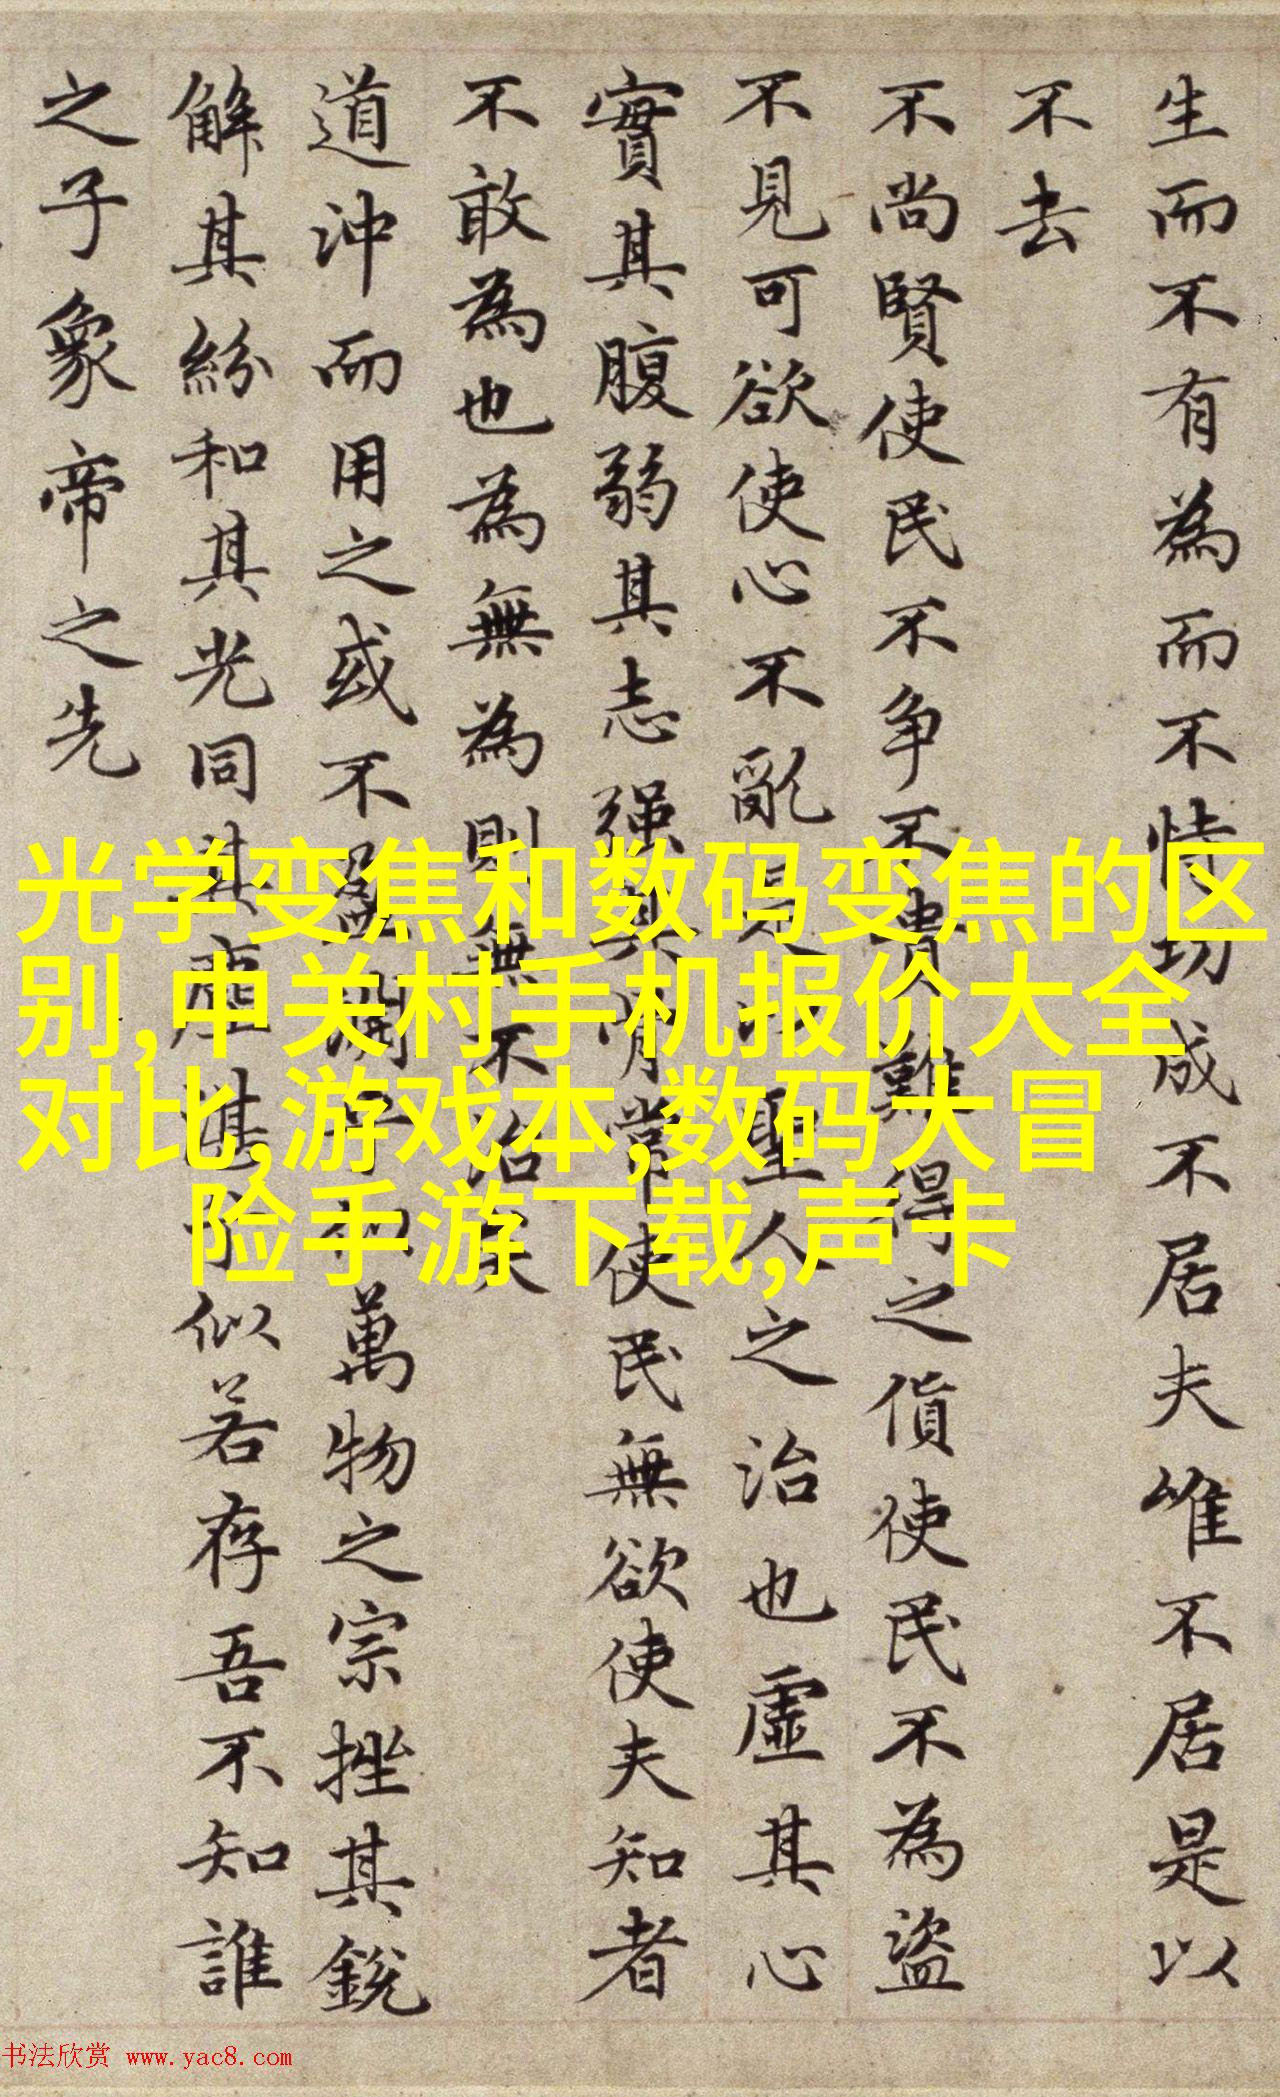 生而不有為而不恃功成不居夫唯不居是以
不去
不尚賢使民不争不貴難得之貨使民不為盜
不見可欲使心不亂是以聖人之治也虛其心
實其腹弱其志强其骨常使民無欲使夫知者
不敢為也為無為則無不治矣
道沖而用之或不盈淵乎似萬物之宗挫其銳
解其紛和其光同其塵湛乎似若存吾不知誰
之子象帝之先
光学变焦和数码变焦的区
别,中关村手机报价大全
对比,游戏本,数码大冒
险手游下载,声卡
书法欣赏 www.yac8.com